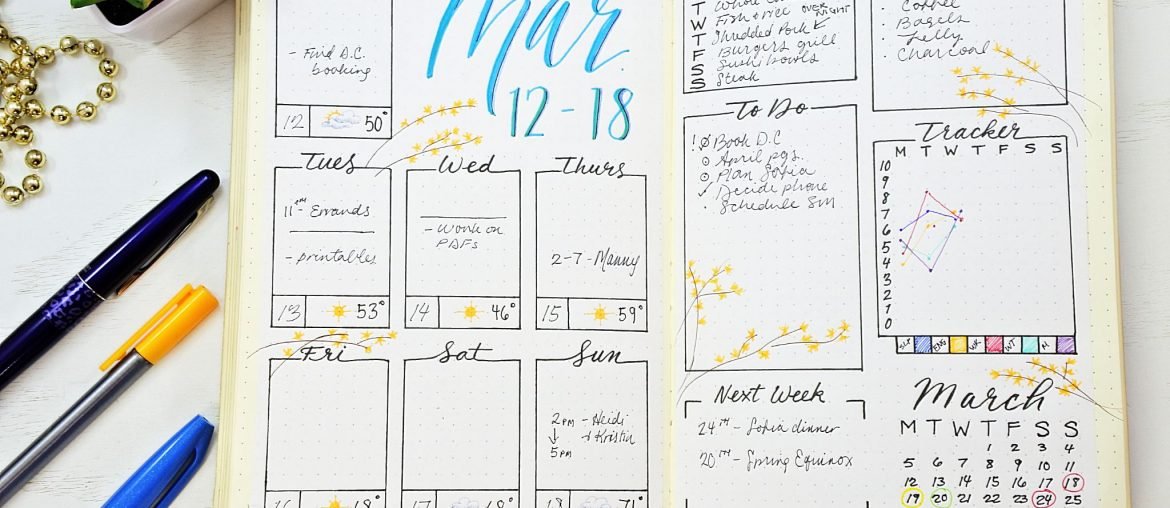 - Find D.C.
booking
12 50°
Mar.
12-18
Tues
11 Errands
- printables
13 53°
Wed
- Work on
PDFs
14 46°
Thurs
2-7 - Manny
15 59°
Fri
Sat
Sun
2PM - Heidi
+ Kristin
5PM
T
W Fish & rice OVER NIGHT
T Shredded Pork
F Burgers grill
S Sushi bowls
S Steak
To Do
Book D.C
April pgs.
Plan Sofia
Decide phone
Schedule
Next Week
24TH - Sofia dinner
20TH - Spring Equinox
Bagels
Jelly
Charcoal
Tracker
M T W T F S S
10
9
8
7
6
5
4
3
2
1
0
March
M T W T F S S
1 2 3 4
5 6 7 8 9 10 11
12 13 14 15 16 17 18
19 20 21 22 23 24 25